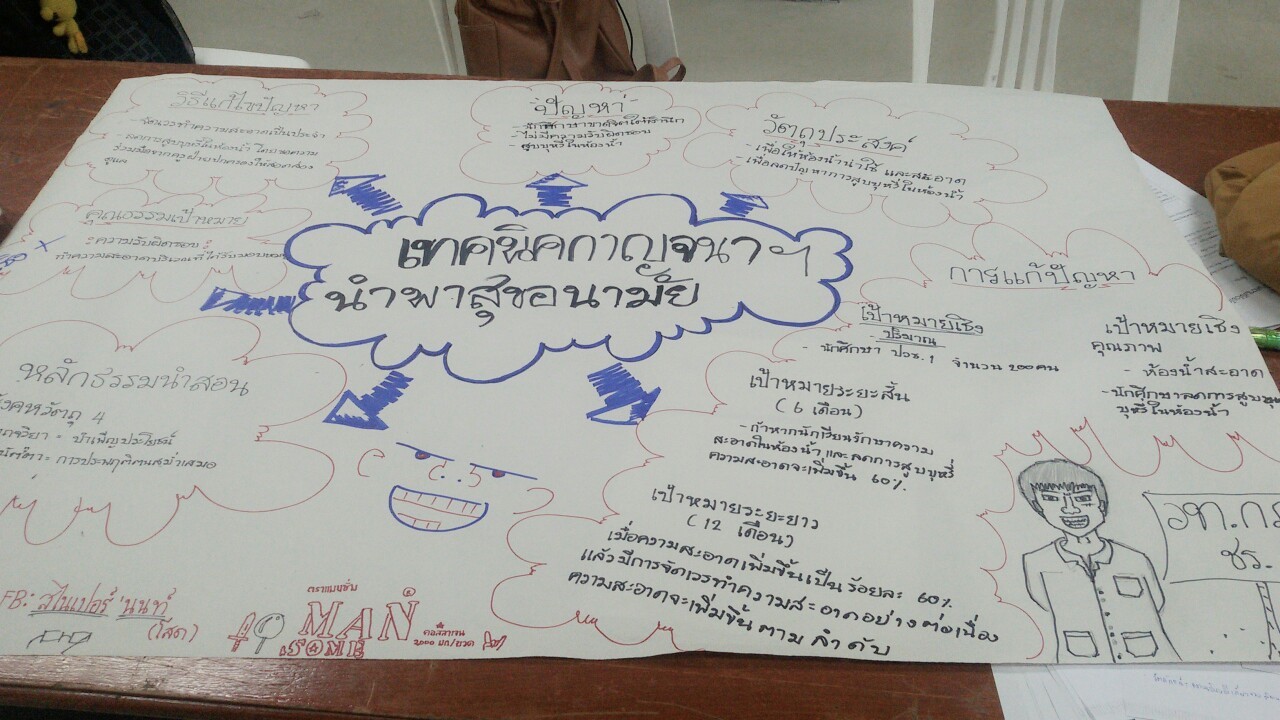 วิธีแก้ไขปัญหา
- จัดเวรทำความสะอาดเป็นประจำ
- ลดการสูบบุหรี่ในห้องน้ำ โดยขอความ
ร่วมมือจากครูฝ่ายปกครองให้สอดส่อง
ดูแล
ปัญหา
- นักศึกษาขาดจิตใต้สำนึก
- ไม่มีความรับผิดชอบ
- สูบบุหรี่ในห้องน้ำ
วัตถุประสงค์
- เพื่อให้ห้องน้ำน่าใช้ และสะอาด
- เพื่อลดปัญหาการสูบบุหรี่ในห้องน้ำ
คุณธรรมเป้าหมาย
ความรับผิดชอบ
ทำความสะอาดบริเวณที่ได้รับมอบหมาย
เทคนิคกาญจนาฯ
นำพาสุขอนามัย
หลักธรรมนำสอน
สังคหวัตถุ 4
อัตถจริยา = บำเพ็ญประโยชน์
สมานัตตา = การประพฤติตนสม่ำเสมอ
การแก้ปัญหา
เป้าหมายเชิง
ปริมาณ
- นักศึกษา ปวช.1 จำนวน 200 คน
เป้าหมายเชิง
คุณภาพ
- ห้องน้ำสะอาด
- นักศึกษาลดการสูบบุห
บุหรี่ในห้องน้ำ
เป้าหมายระยะสั้น
(6 เดือน)
- ถ้าหากนักเรียนรักษาความ
สะอาดในห้องน้ำ และลดการสูบบุหรี่
ความสะอาดจะเพิ่มขึ้น 60%
เป้าหมายระยะยาว
(12 เดือน)
เมื่อความสะอาดเพิ่มขึ้นเป็น ร้อยละ 60%
แล้วมีการจัดเวรทำความสะอาดอย่างต่อเนื่อง
ความสะอาดจะเพิ่มขึ้นตามลำดับ
FB: สไนเปอร์ นนท์
(โสด)
ตราแมงซั่น
MAN
SOME
คอลลาเจน
2000 มก/ขวด
วท.กา
ชร.